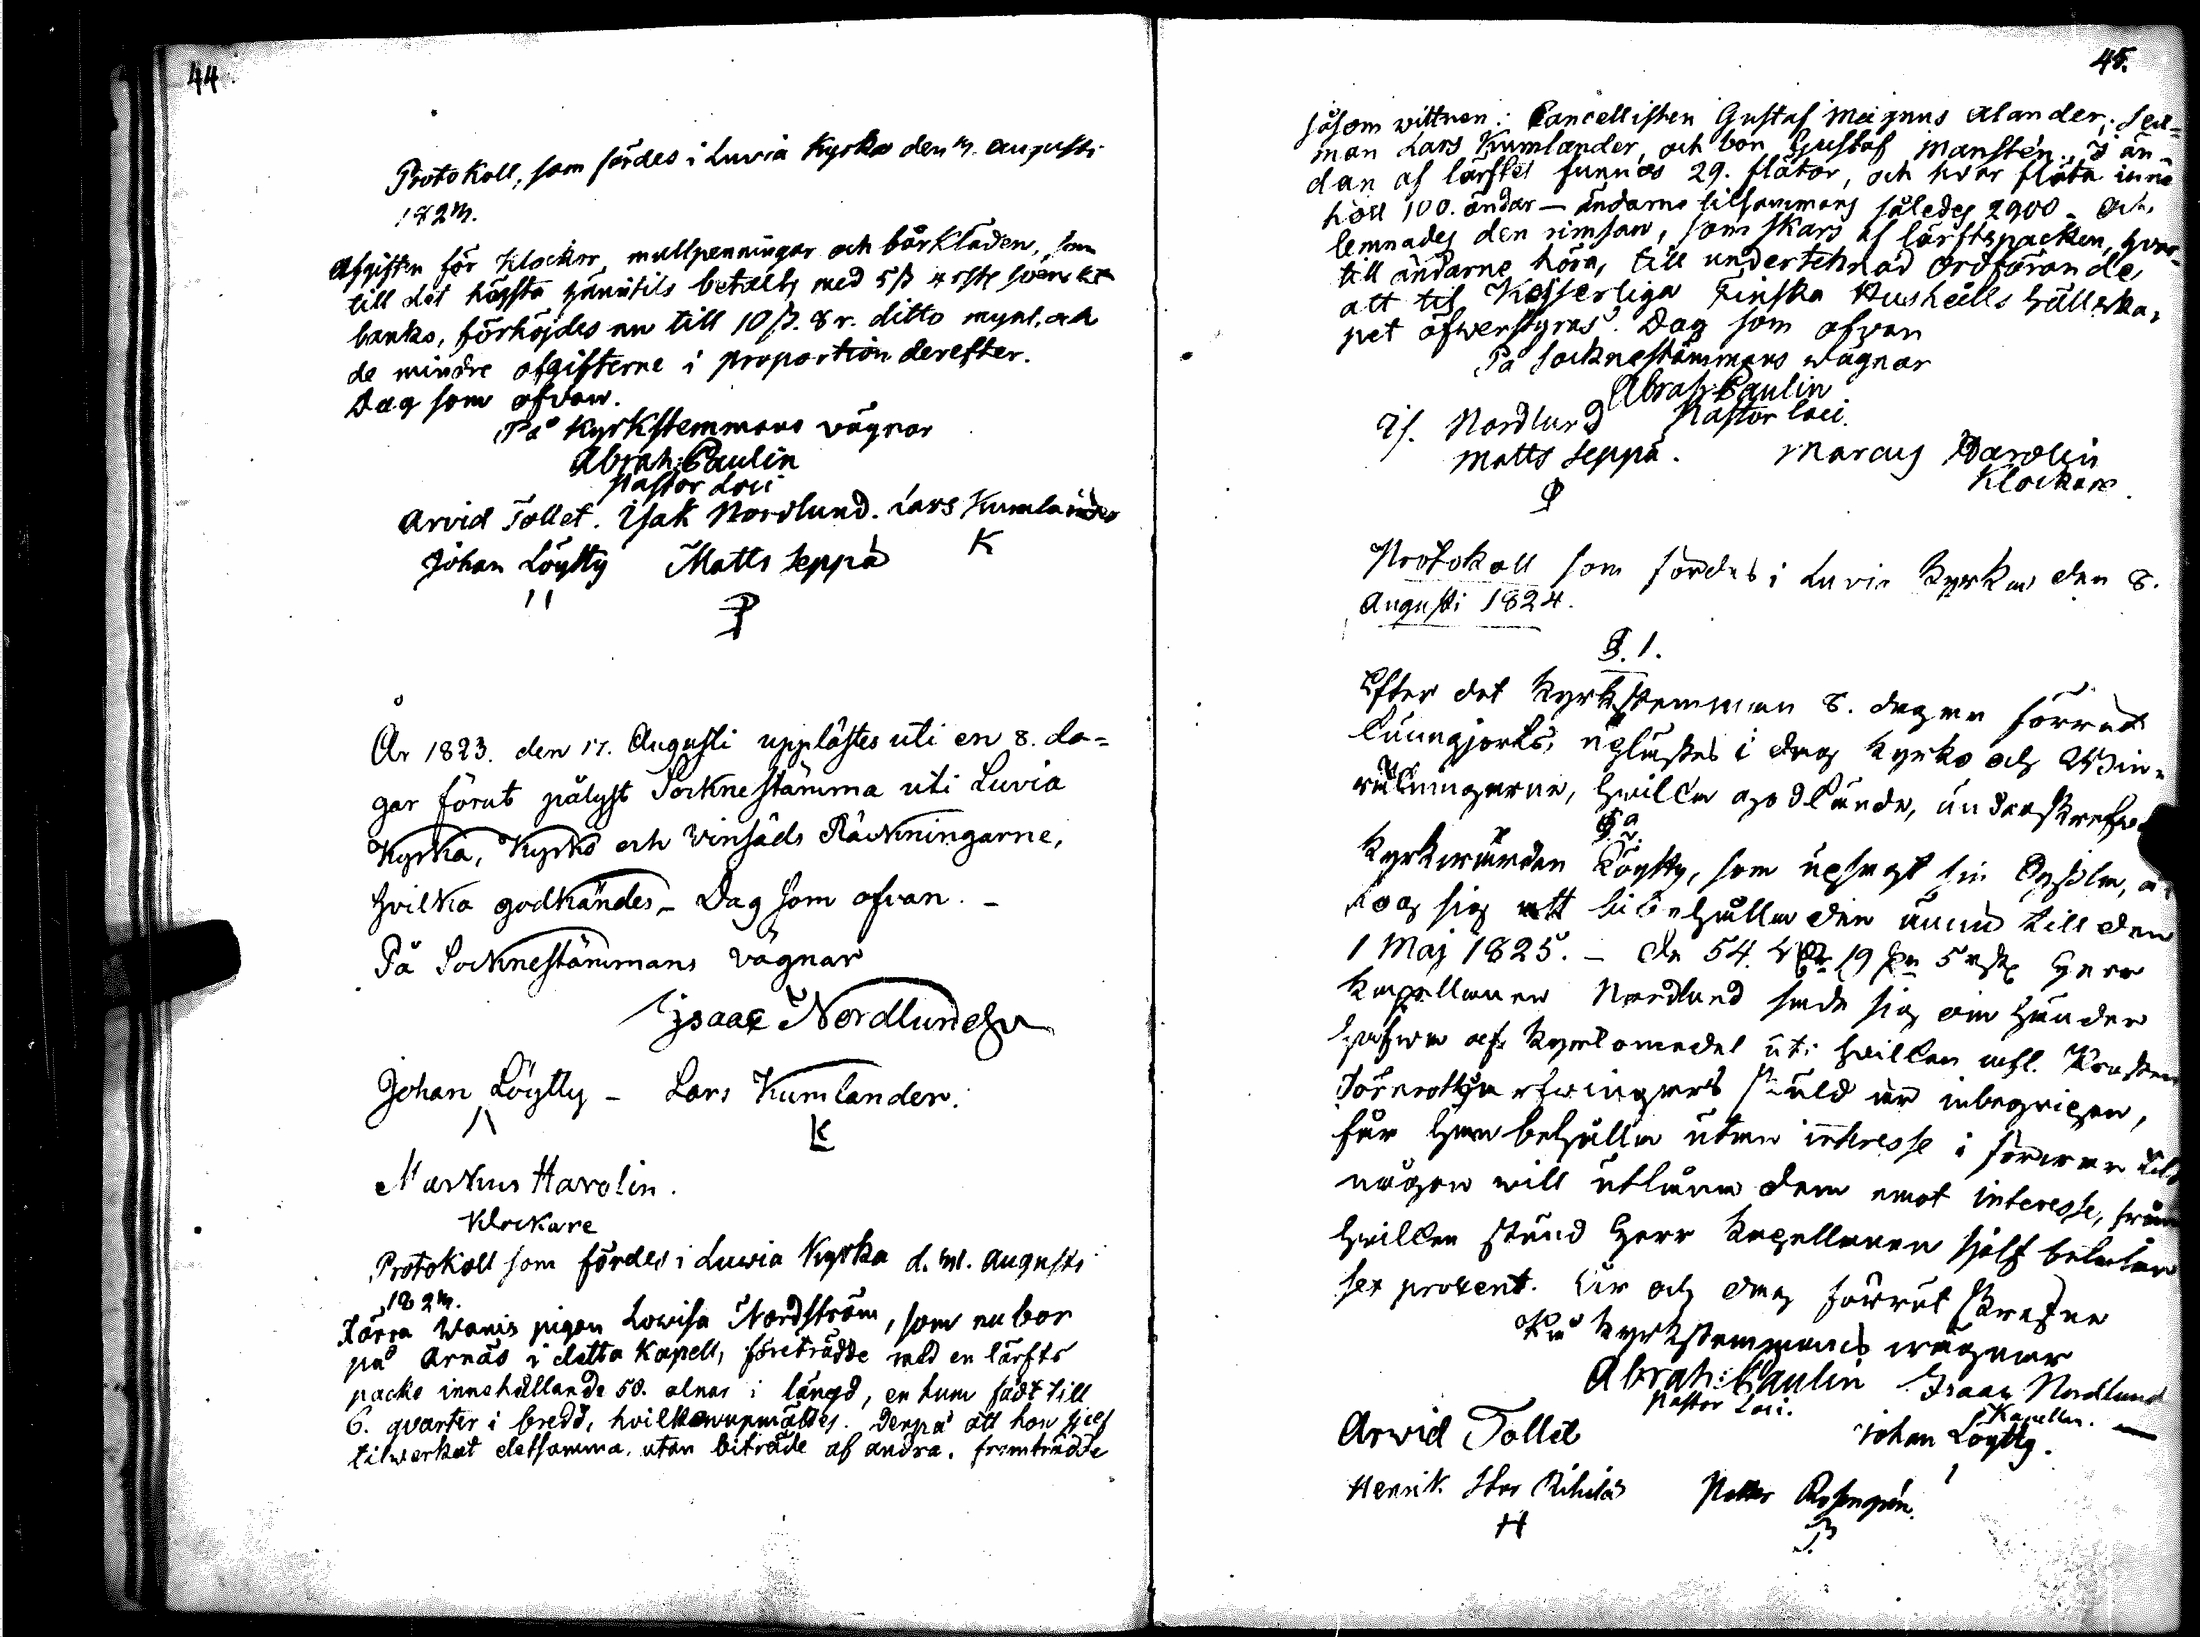 44.
Protokoll, som fördes i Luvia Kyrka den 17. Augusti
1823.
Afgiften för Klockor, mullpenningar och bårkläden, som
till det högsta hänintils betalts med 5 ß 4 rst. svenskt
banko, förhöjdes nu till 10 ß. 8 r. ditto mynt, och
de mindre afgifterne i proportion derefter.
Dag som ofvan.
På Kyrkstemmans vägnar
Abrah: Paulin
Pastor Loci
Arvid Tollet. Isak Nordlund. Lars Kumlander
K
Johan Löytty Matts Seppä
År 1823. den 17. Augusti upplästes uti en 8. da=
gar förut pålyst Socknestämma uti Luvia
Kyrka, Kyrko och Vinsäds Räckningarne,
hvilka godkändes. – Dag som ofvan. –
På Socknestämmans vägnar
Isaac Nordlund
Johan Löytty – Lars Kumlander.
K
Markus Harolin.
Klockare
Protokoll som fördes i Luvia Kyrka d. Augusti
182
Förra pigan Lowisa Nordström, som nu bor
på Arnäs i detta Kapell, företrädde med en lärfts
packe innehållande 50. alnar i längd, en tum fådt till
6. qvarter i bredd, hvilken upmättes. Derpå att hon sjelf
tilwerkat detsamma utan biträde af andra, framträdde
45.
såsom wittnen: Cancellisten Gustaf Magnus Alander, Sex=
man Lars Kumlander, och bon. Gustaf Manstén. I än=
dan af lärftet funnos 29. flätor, och hvar fläta inne
höll 100. ändar – ändarne tilsammans således 2900 – och
lemnades den rimsan, som skars af lärftspacken, hvar=
till ändarne höra, till undertecknad Ordförande
att til Kejserliga Finska Hushålls Sällska=
pet öfwerstyras. Dag som ofvan
På Socknestämmans wägnar
Abrah: Paulin
Pastor loci.
Is. Nordlund
Matts Seppä. Marcus Harolin
Klockare.
Protokoll som fördes i Luvia Kyrka den 8.
Augusti 1824.
§. 1.
Efter det Kyrkstemman 8. dagar förrut
kungjorts, uplästes i dag Kyrko och Win=
räkningarne, hvilka godkände, underskrefwos
§ 2.
Kyrkwärden Löytty, som upsagt sin syssla,
tog sig att bibehålla den ännu till den
1 Maj 1825. – De 54. 19 5 Herr
Kapellanen Nordlund sade sig om händer
hafwa af Kyrkomedel uti hvilken
skuld är inbegripen,
får han behålla utan interesse i förwar tils
någon will utlåna dem emot interesse, från
hvilken stund Herr Kapellanen sjelf betalar
sex procent. År och dag förrut skrefne
På Kyrkstemmans wägnar
Abrah: Paulin Isaac Nordlund
Pastor Loci. Kapellan.
Arwid Tollet Johan Löytty.
Henrik Stor Petter Rosengrén.
H